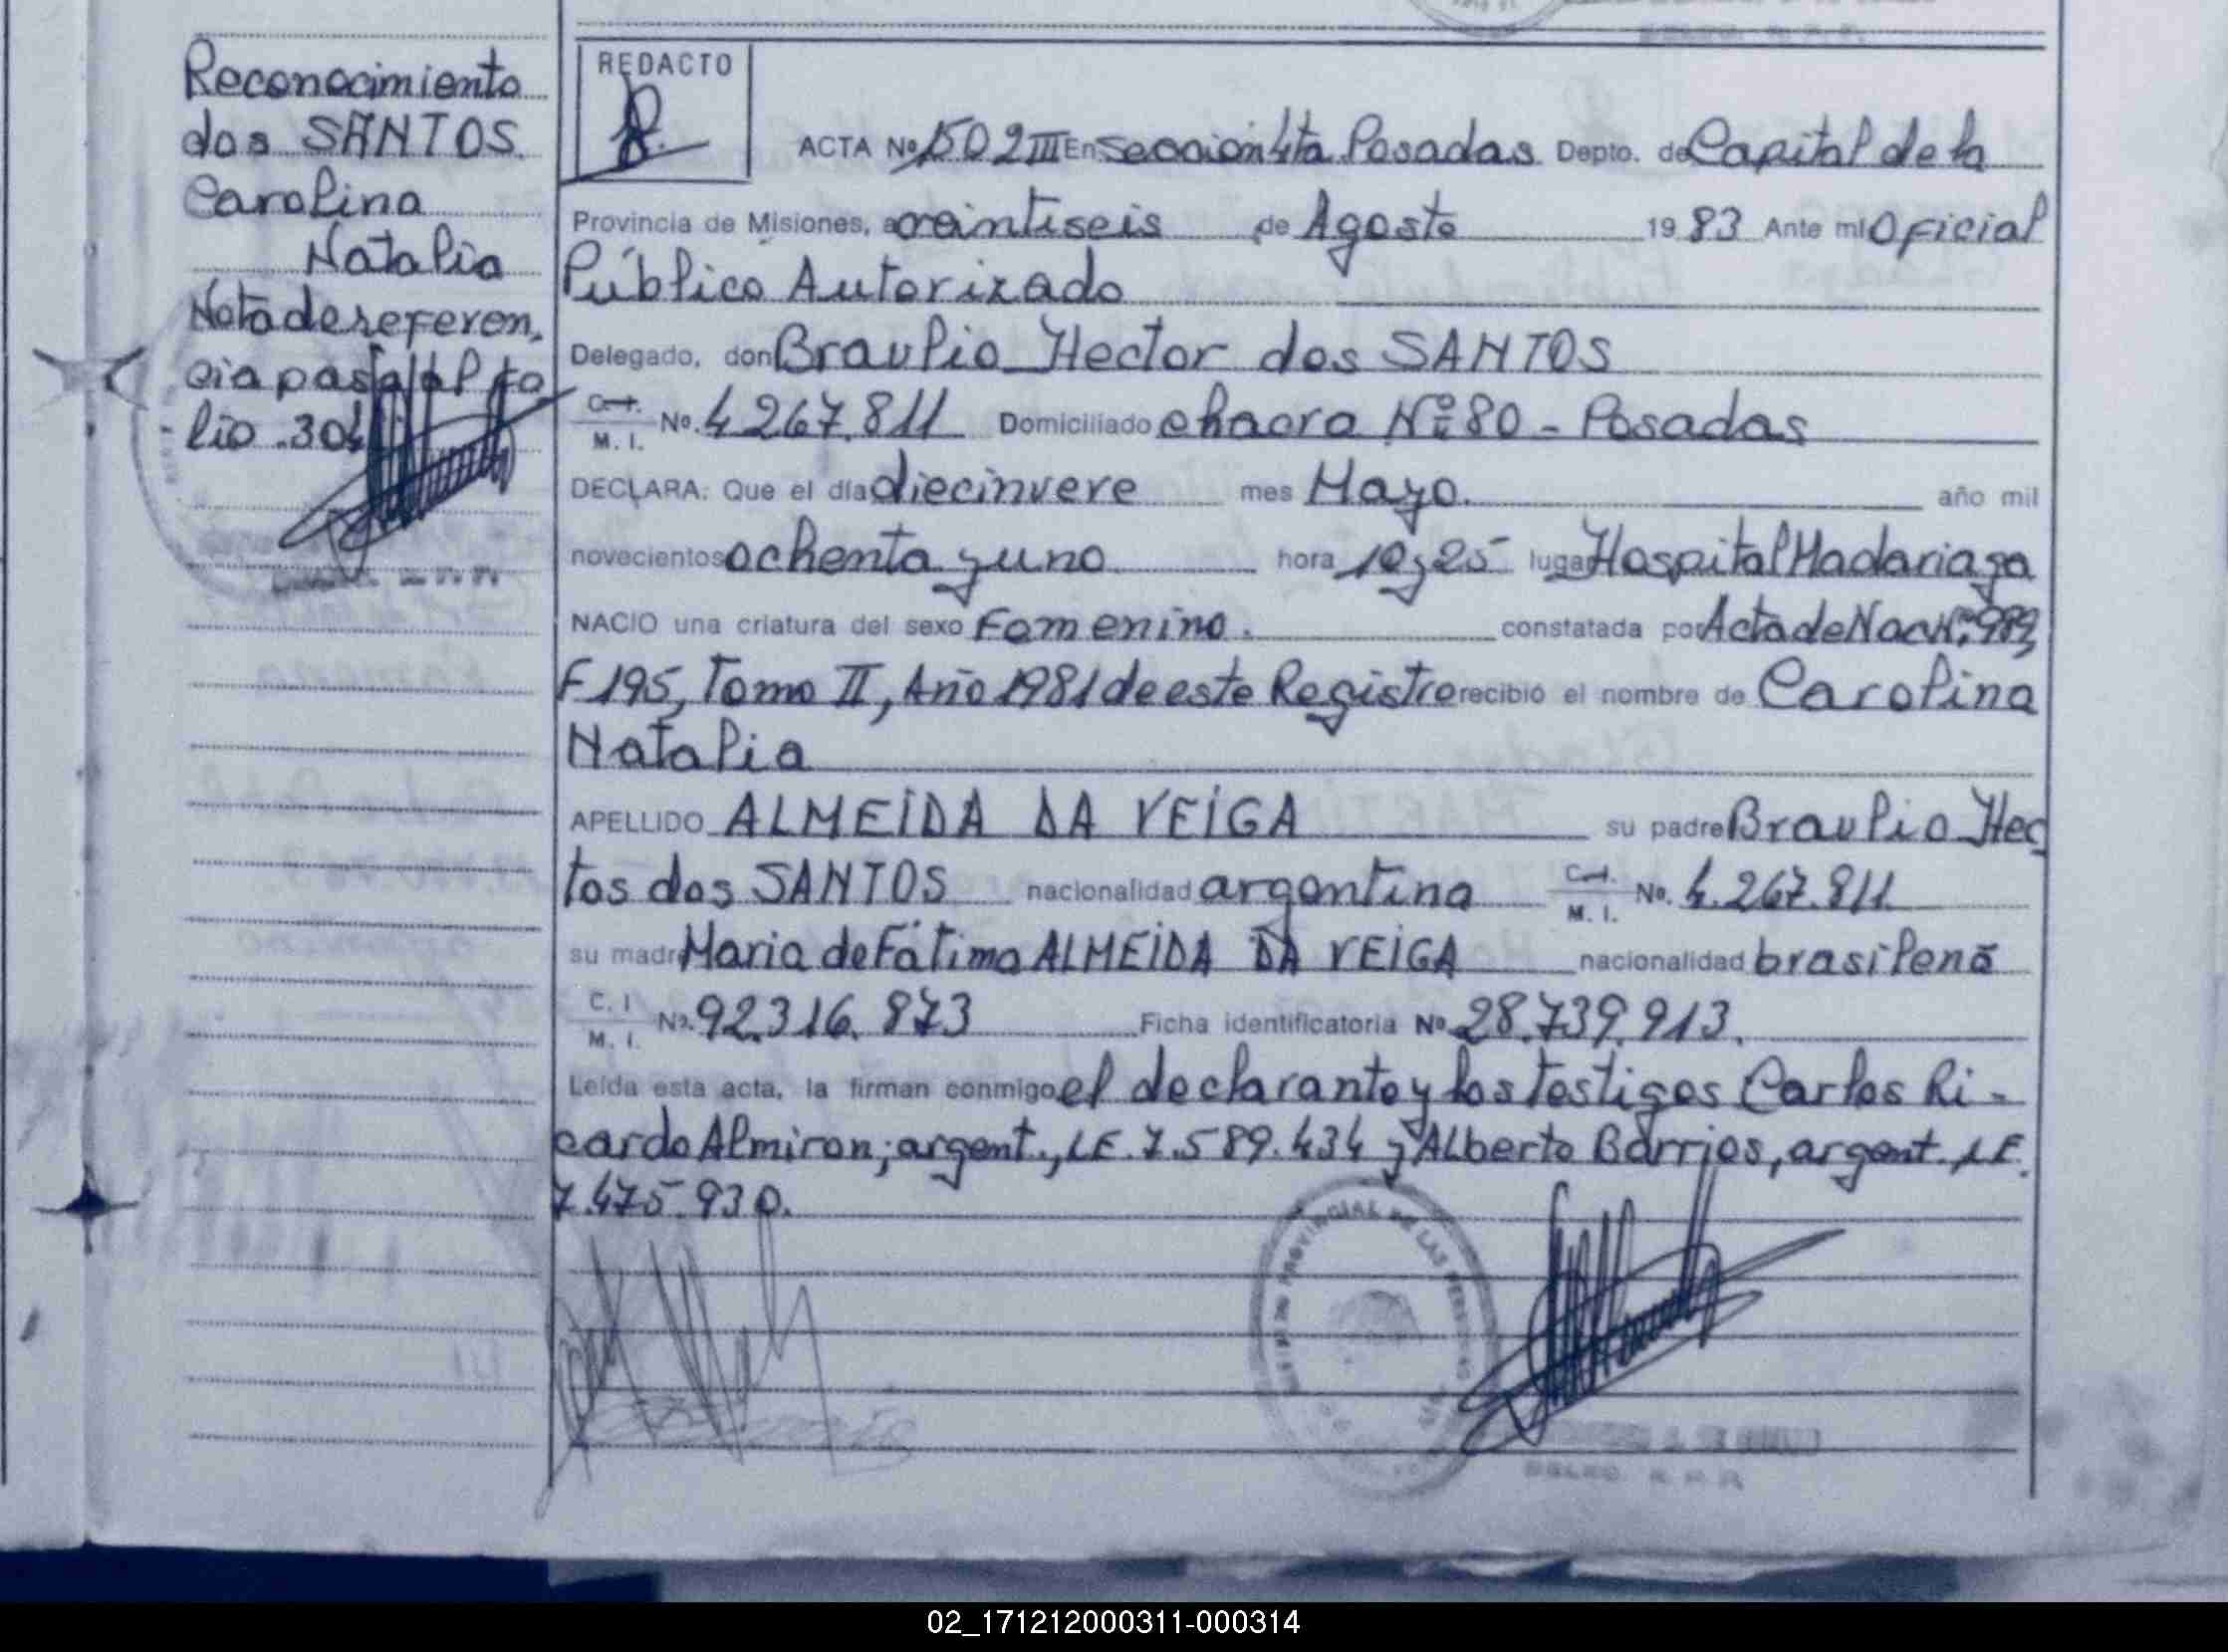 Reconocimiento
dos SANTOS
Carolina
Natalia
Nota de referen.
cia pasa al fo
lio 304
REDACTO
ACTA Nº 1502 III En sección 4ta Posadas Depto. de Capital de la
Provincia de Misiones, a veintiseis de Agosto 1983 Ante mi Oficial
Público Autorizado
Delegado, don Braulio Hector dos SANTOS
C. I. M. I. No. 4.267.811 Domiciliado chacra Nº 80 - Posadas
DECLARA: Que el día diecinueve mes Mayo. año mil
novecientos ochenta y uno hora 10 y 25 lugar Hospital Madariaga
NACIO una criatura del sexo Femenino. constatada por Acta de Nac Nº 989,
F 195, Tomo II, Año 1981 de este Registro recibió el nombre de Carolina
Natalia
APELLIDO ALMEIDA DA VEIGA su padre Braulio Hec
tos dos SANTOS nacionalidad argentina C. I. M. I. No. 4.267.811
su madre Maria de Fátima ALMEIDA DA VEIGA nacionalidad brasileña
C. I M. I. No. 92.316.873 Ficha identificatoria Nº 28.739.913.
Leída esta acta, la firman conmigo el declarante y los testigos Carlos Ri-
cardo Almiron; argent., L.E. 7.589.434 y Alberto Barrios, argent. L.E.
7.475.930.
PROVINCIAL DE LAS PERSONAS
02_171212000311-000314